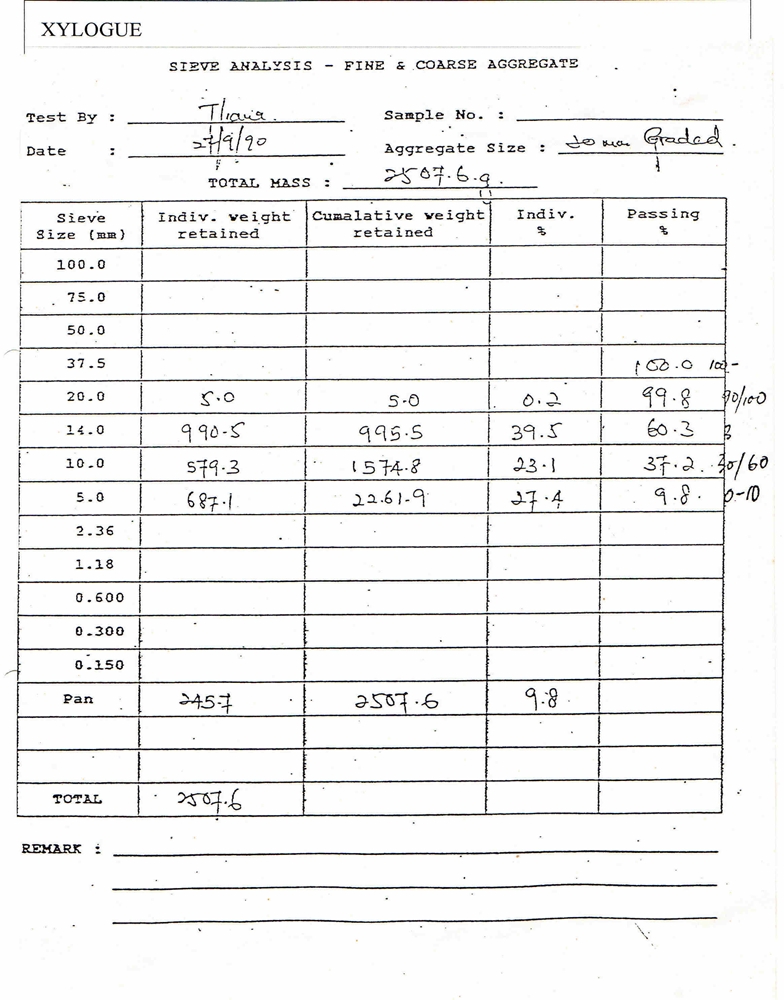 XYLOGUE
SIEVE ANALYSIS - FINE & COARSE AGGREGATE
Test By : Sample No. :
Date : 27/9/90 Aggregate Size : Graded.
TOTAL MASS : 2507.6.g.
Sieve Size (mm) Indiv. weight retained Cumalative weight retained Indiv. % Passing %
100.0
75.0
50.0
37.5 100.0 100-
20.0 5.0 5.0 0.2 99.8 90/100
14.0 990.5 995.5 39.5 60.3
10.0 579.3 1574.8 23.1 37.2 30/60
5.0 687.1 2261.9 27.4 9.8. 0-10
2.36
1.18
0.600
0.300
0.150
Pan 245.7 2507.6 9.8
TOTAL 2507.6
REMARK :